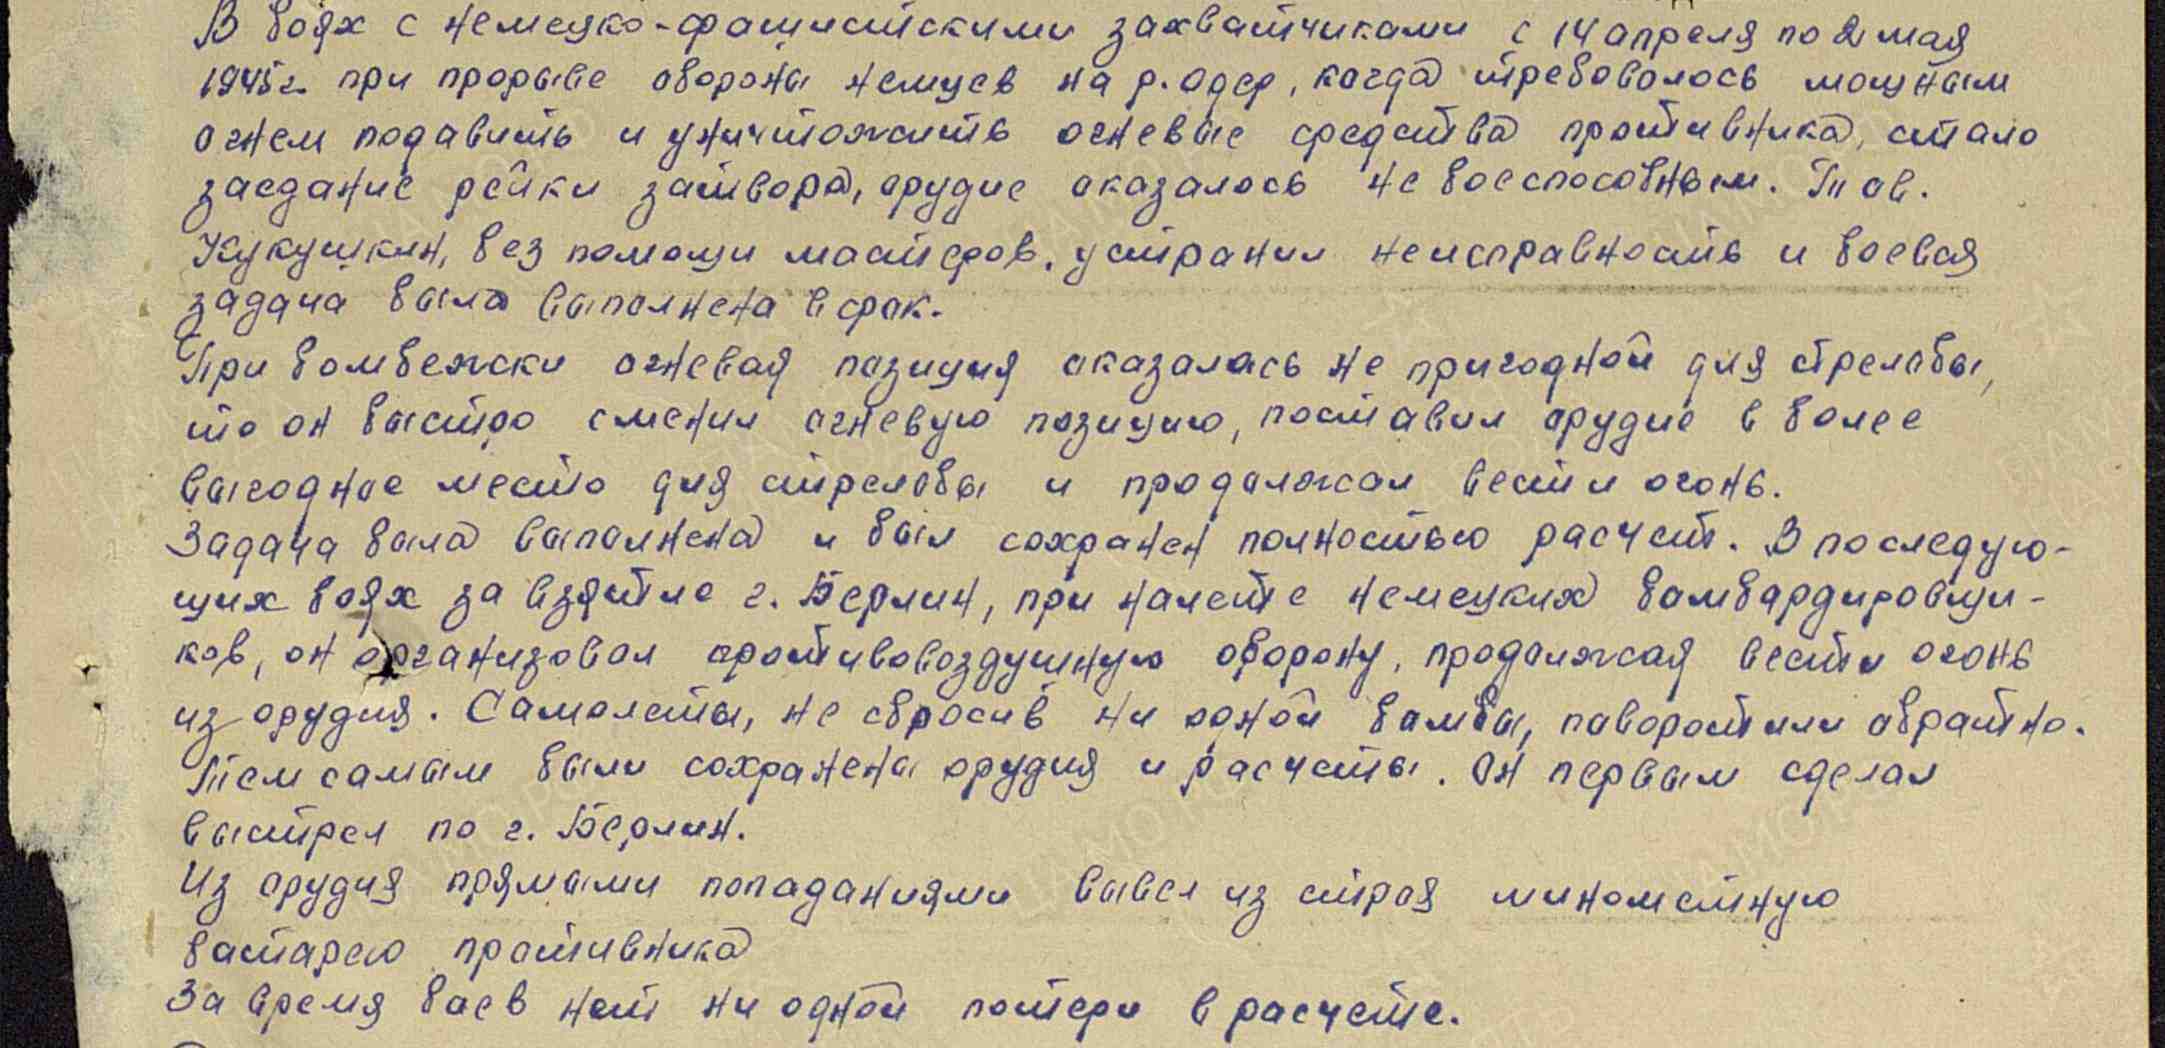 В боях с немецко-фашистскими захватчиками с 14 апреля по 2 мая
1945г. при прорыве обороны немцев на р. Одер, когда требовалось мощным
огнем подавить и уничтожить огневые средства противника, стало
заедание рейки затвора, орудие оказалось не боеспособным. Тов.
Кукушкин, без помощи мастеров, устранил неисправность и боевая
задача была выполнена в срок.
При бомбежски огневая позиция оказалась не пригодной для стрелобы,
то он быстро сменил огневую позицию, поставил орудие в более
выгодное место для стрелобы и продолжал вести огонь.
Задача была выполнена и был сохранен полностью расчет. В последую-
щих боях за взятие г. Берлин, при налете немецких бомбардировщи-
ков, он организовал противовоздушную оборону, продолжая вести огонь
из орудия. Самолеты, не сбросив ни одной бомбы, поворотили обратно.
Тем самым были сохранены орудия и расчеты. Он первым сделал
выстрел по г. Берлин.
Из орудия прямыми попаданиями вывел из строя минометную
батарею противника
За время боев нет ни одной потери в расчете.